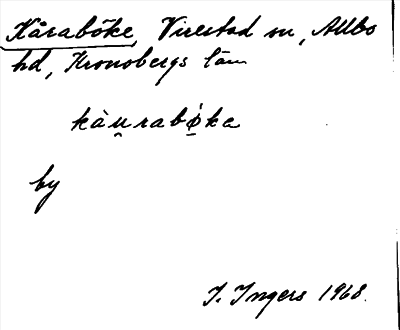 Kåraböke, Virestad sn, Allbo
hd, Kronobergs län
kàu̯rabø̀ka
by
I. Ingers 1968.